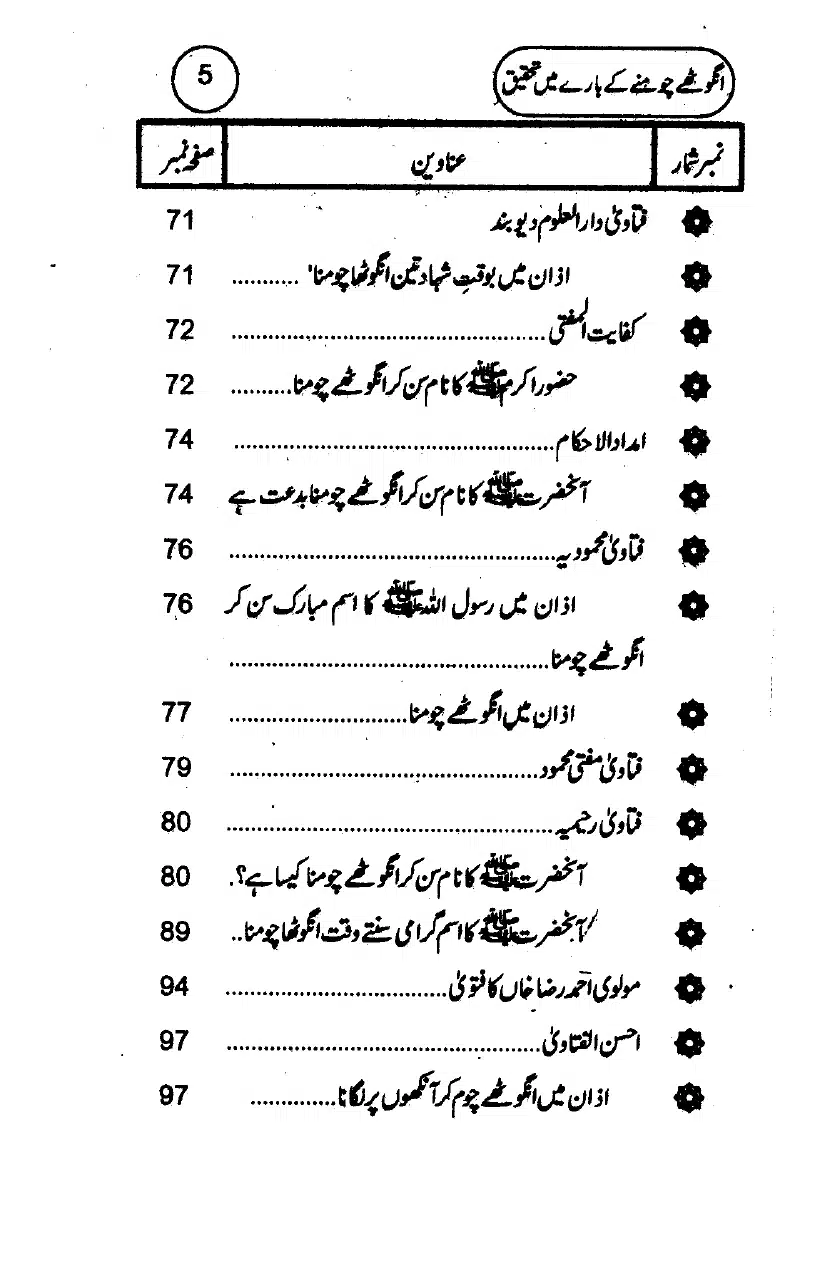 انگوٹھے چومنے کے بارے میں تحقیق 5
نمبر شمار عناوین صفحہ نمبر
فتاویٰ دار العلوم دیوبند 71
اذان میں بوقتِ شہادتین انگوٹھا چومنا' ........... 71
کفایت المفتی .................................................. 72
حضور اکرم ﷺ کا نام سن کر انگوٹھے چومنا.......... 72
امداد الاحکام .................................................. 74
آنحضرت ﷺ کا نام سن کر انگوٹھے چومنا بدعت ہے 74
فتاویٰ محمودیہ .................................................. 76
اذان میں رسول اللہ ﷺ کا اسم مبارک سن کر 76
انگوٹھے چومنا ..................................................
اذان میں انگوٹھے چومنا ............................. 77
فتاویٰ مفتی محمود .................................................. 79
فتاویٰ رحیمیہ .................................................. 80
آنحضرت ﷺ کا نام سن کر انگوٹھے چومنا کیسا ہے؟. 80
آنحضرت ﷺ کا اسم گرامی سنتے وقت انگوٹھا چومنا .. 89
مولوی احمد رضا خاں کا فتویٰ ................................... 94
احسن الفتاویٰ .................................................. 97
اذان میں انگوٹھے چوم کر آنکھوں پر لگانا .............. 97